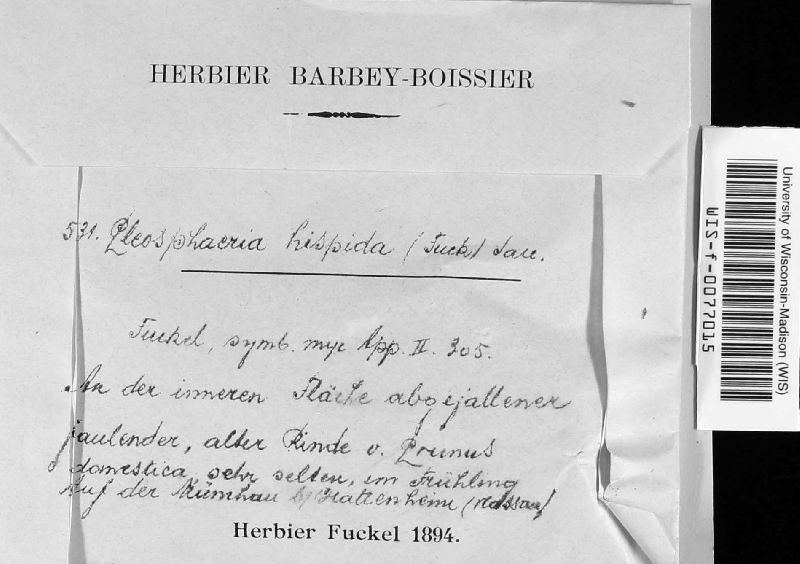 HERBIER BARBEY-BOISSIER
531. Pleosphaeria hispida (Fuck) Sacc.
Fuckel, symb. myc App. II. 305.
An der inneren Fläche abgefallener
faulender, alter Rinde v. Prunus
domestica, sehr selten, im Frühling
Auf der b/ Hattenheim (Nassau)
Herbier Fuckel 1894.
University of Wisconsin-Madison (WIS)
WIS-f-0077015